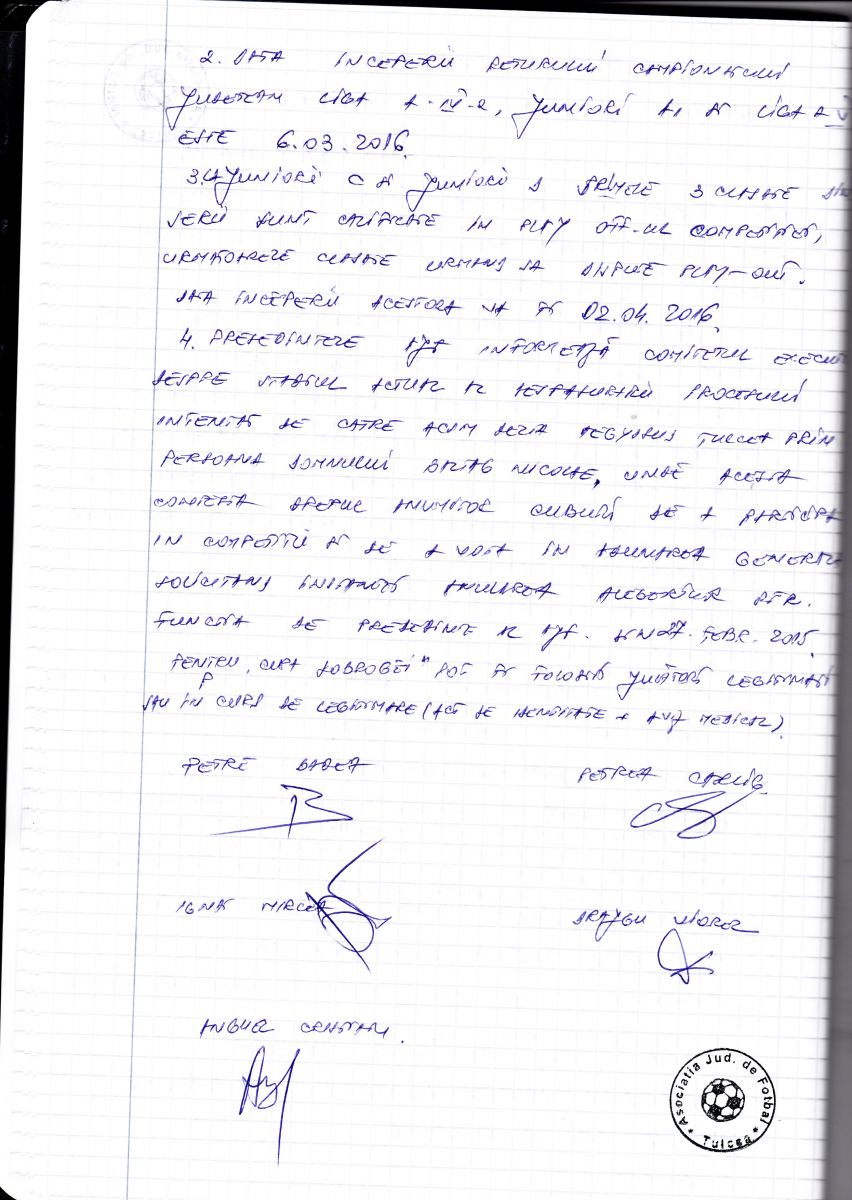 2. DATA INCEPERII RETURULUI CAMPIONATULUI
JUDETEAN LIGA A-IV-a, JUNIORI A, SI LIGA A V
ESTE 6.03.2016.
3. LA JUNIORI C SI JUNIORI D PRIMELE 3 CLASATE DIN
SERII SUNT CALIFICATE IN PLAY OFF-UL COMPETITIEI,
URMATOARELE CLASATE URMAND SA DISPUTE PLAY-OUT.
DATA INCEPERII ACESTORA VA FI 02.04.2016.
4. PRESEDINTELE AJF INFORMEAZĂ COMITETUL EXECU
DESPRE STADIUL ACTUAL AL DESFASURARII PROCESULUI
INTENTAT DE CATRE ACSM DELTA AEGYSSUS TULCEA PRIN
PERSOANA DOMNULUI NICOLAE, UNDE ACESTA
CONTESTA DREPTUL ANUMITOR CLUBURI DE A PARTICIPA
IN COMPETITII SI DE A VOTA IN ADUNAREA GENERALA
SOLICITAND INSTANTEI ANULAREA ALEGERILOR PTR.
FUNCTIA DE PRESEDINTE AL AJF. DIN 27. FEBR. 2015.
PENTRU "CUPA DOBROGEI" POT FI FOLOSITI JUCĂTORI LEGITIMATI
SAU IN CURS DE LEGITIMARE (ACT DE IDENTITATE + AVIZ MEDICAL)
PETRE BADEA
PETREA
IGNAT MIRCEA
VIOREL
ANGHEL CRISTIAN.
Asociatia Jud. de Fotbal
* Tulcea *